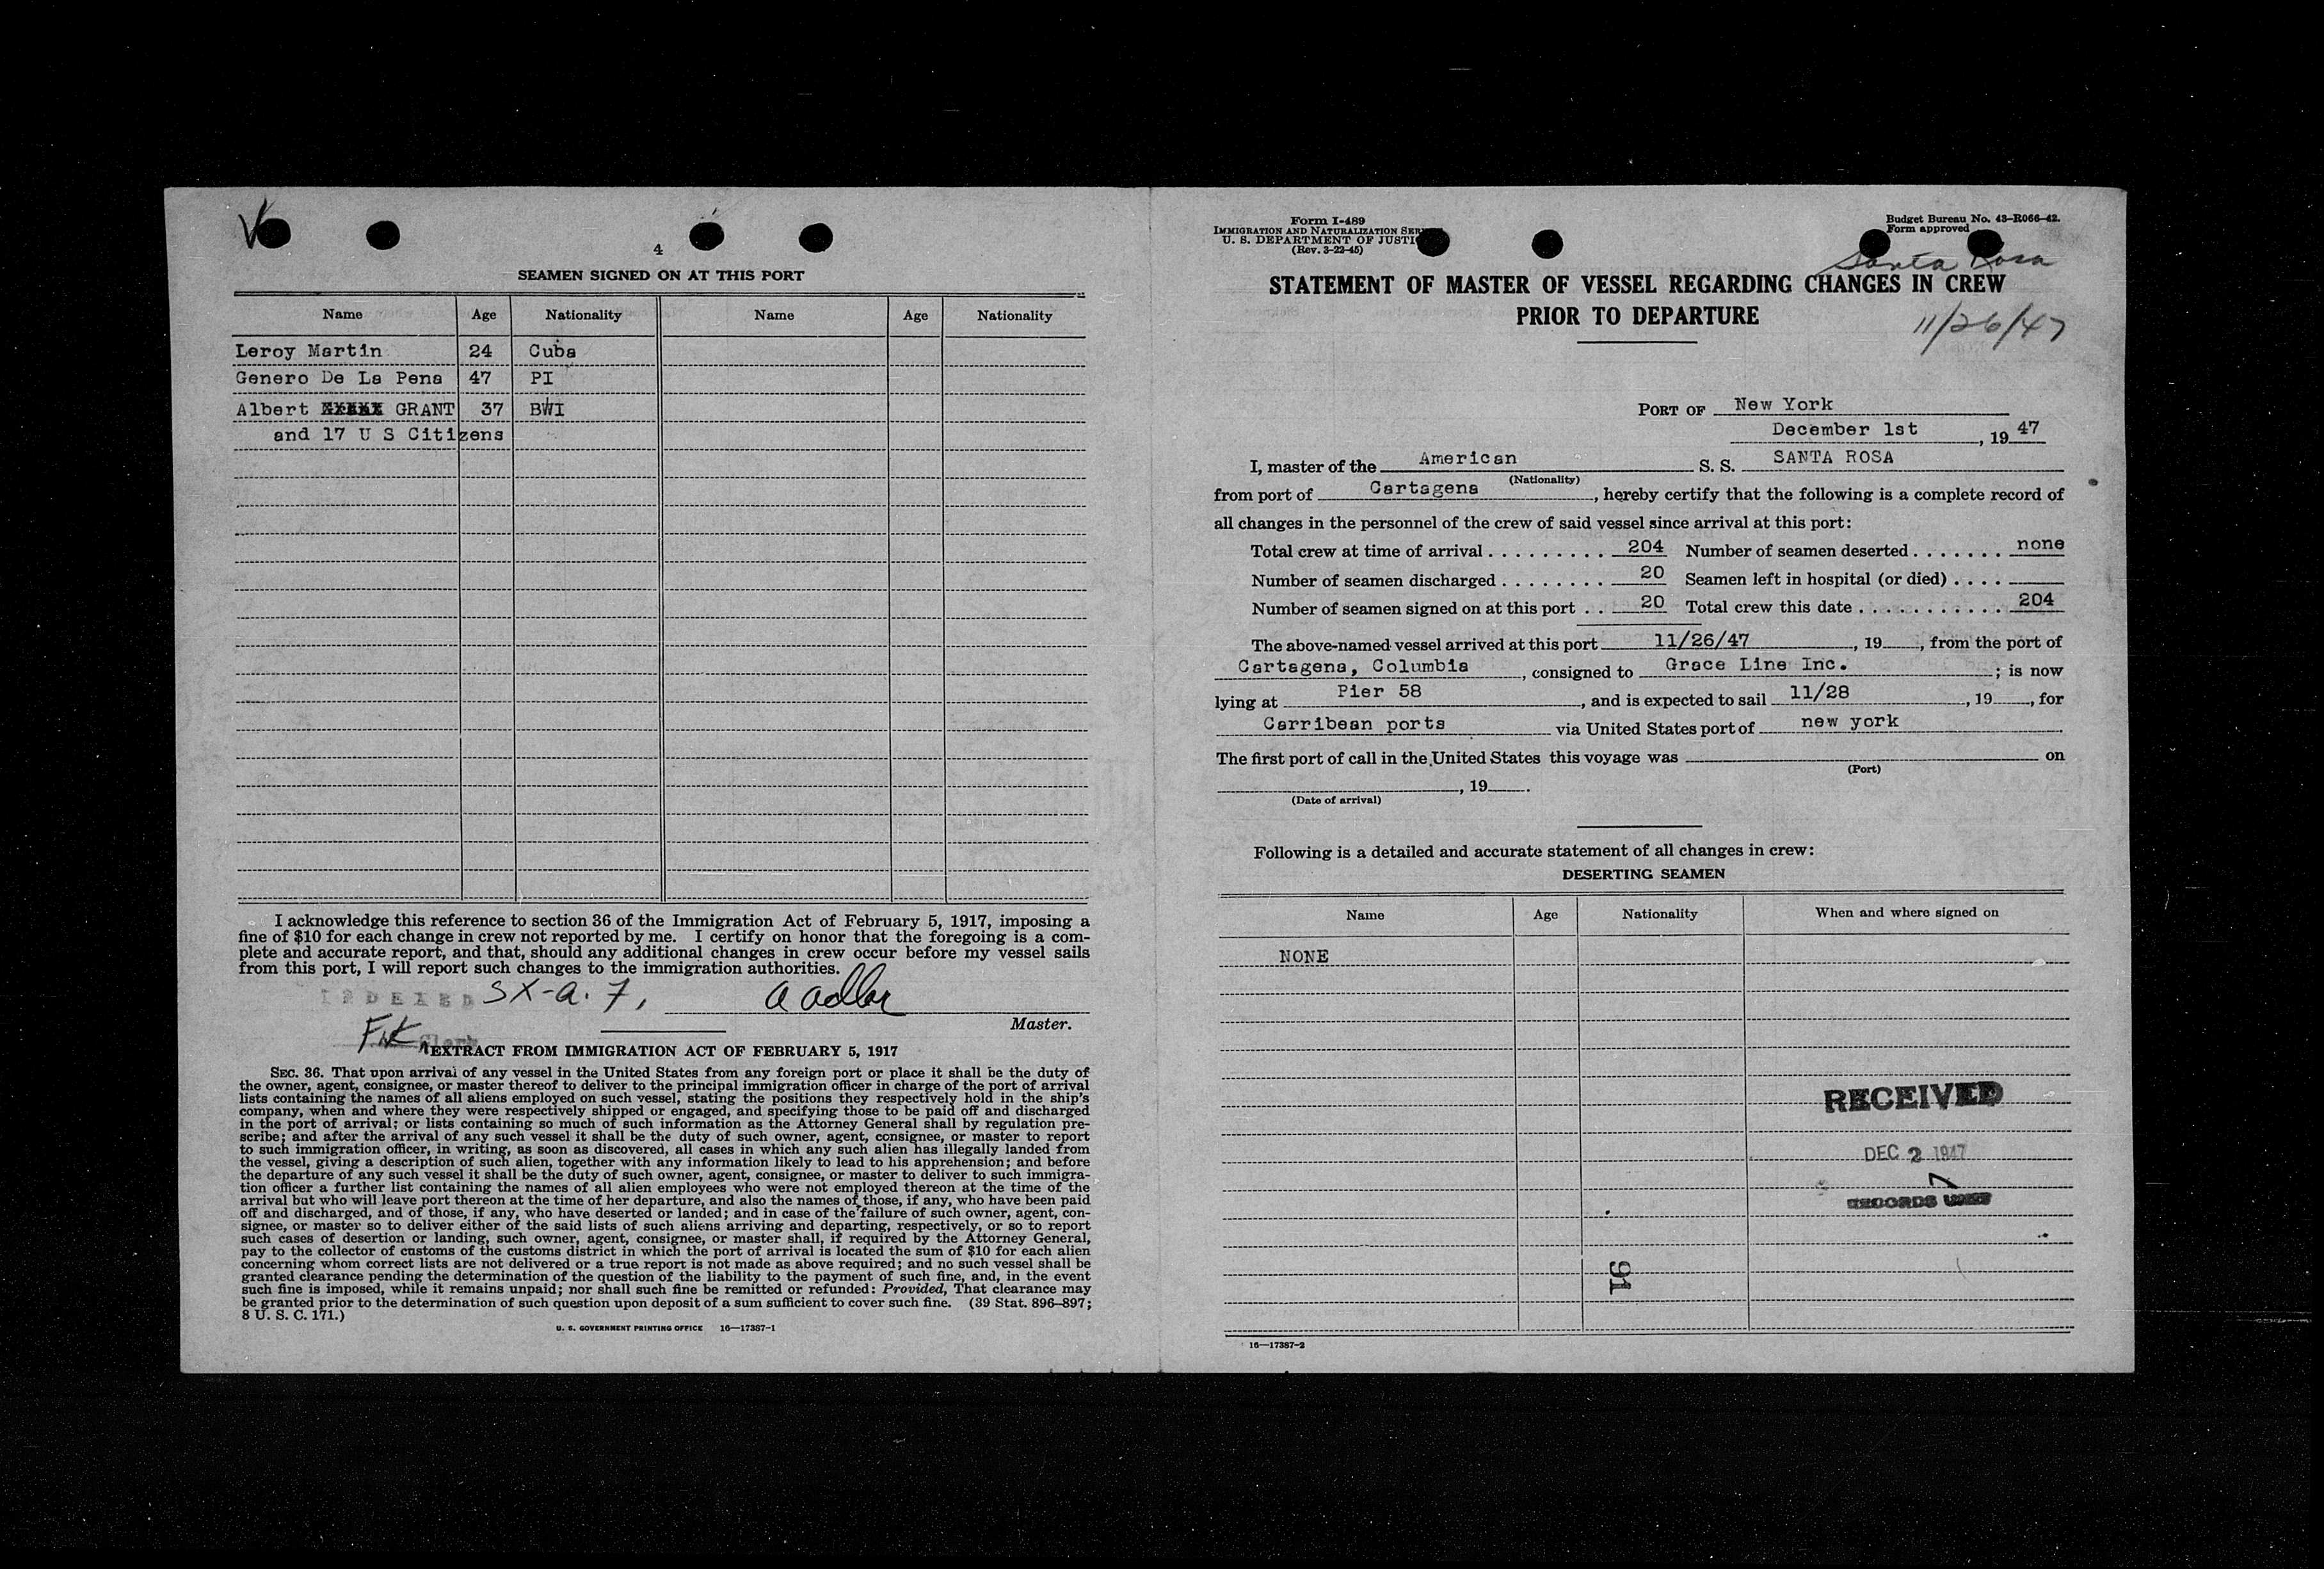 4
SEAMEN SIGNED ON AT THIS PORT
Name Age Nationality Name Age Nationality
Leroy Martin 24 Cuba
Genero De La Pena 47 PI
Albert GRANT 37 BWI
and 17 U S Citizens
I acknowledge this reference to section 36 of the Immigration Act of February 5, 1917, imposing a
fine of $10 for each change in crew not reported by me. I certify on honor that the foregoing is a com-
plete and accurate report, and that, should any additional changes in crew occur before my vessel sails
from this port, I will report such changes to the immigration authorities.
INDEXED SX-a. 7,
Master.
Clerk
EXTRACT FROM IMMIGRATION ACT OF FEBRUARY 5, 1917
SEC. 36. That upon arrival of any vessel in the United States from any foreign port or place it shall be the duty of
the owner, agent, consignee, or master thereof to deliver to the principal immigration officer in charge of the port of arrival
lists containing the names of all aliens employed on such vessel, stating the positions they respectively hold in the ship's
company, when and where they were respectively shipped or engaged, and specifying those to be paid off and discharged
in the port of arrival; or lists containing so much of such information as the Attorney General shall by regulation pre-
scribe; and after the arrival of any such vessel it shall be the duty of such owner, agent, consignee, or master to report
to such immigration officer, in writing, as soon as discovered, all cases in which any such alien has illegally landed from
the vessel, giving a description of such alien, together with any information likely to lead to his apprehension; and before
the departure of any such vessel it shall be the duty of such owner, agent, consignee, or master to deliver to such immigra-
tion officer a further list containing the names of all alien employees who were not employed thereon at the time of the
arrival but who will leave port thereon at the time of her departure, and also the names of those, if any, who have been paid
off and discharged, and of those, if any, who have deserted or landed; and in case of the failure of such owner, agent, con-
signee, or master so to deliver either of the said lists of such aliens arriving and departing, respectively, or so to report
such cases of desertion or landing, such owner, agent, consignee, or master shall, if required by the Attorney General,
pay to the collector of customs of the customs district in which the port of arrival is located the sum of $10 for each alien
concerning whom correct lists are not delivered or a true report is not made as above required; and no such vessel shall be
granted clearance pending the determination of the question of the liability to the payment of such fine, and, in the event
such fine is imposed, while it remains unpaid; nor shall such fine be remitted or refunded: Provided, That clearance may
be granted prior to the determination of such question upon deposit of a sum sufficient to cover such fine. (39 Stat. 896–897;
8 U. S. C. 171.)
U. S. GOVERNMENT PRINTING OFFICE 16—17387-1
Form I-489
IMMIGRATION AND NATURALIZATION SER
U. S. DEPARTMENT OF JUSTI
(Rev. 3-22-45)
Budget Bureau No. 43-R066-42.
Form approved
Santa Rosa
STATEMENT OF MASTER OF VESSEL REGARDING CHANGES IN CREW
PRIOR TO DEPARTURE
11/26/47
PORT OF New York
December 1st, 19 47
I, master of the American S. S. SANTA ROSA
(Nationality)
from port of Cartagena, hereby certify that the following is a complete record of
all changes in the personnel of the crew of said vessel since arrival at this port:
Total crew at time of arrival . . . . . . . . . 204 Number of seamen deserted . . . . . . . none
Number of seamen discharged . . . . . . . . 20 Seamen left in hospital (or died) . . . .
Number of seamen signed on at this port . . 20 Total crew this date . . . . . . . . . . . 204
The above-named vessel arrived at this port 11/26/47, 19, from the port of
Cartagena, Columbia, consigned to Grace Line Inc. ; is now
lying at Pier 58, and is expected to sail 11/28, 19, for
Carribean ports via United States port of new york.
The first port of call in the United States this voyage was on
(Port)
, 19.
(Date of arrival)
Following is a detailed and accurate statement of all changes in crew:
DESERTING SEAMEN
Name Age Nationality When and where signed on
NONE
RECEIVED
DEC 2 1947
7
RECORDS UNIT
91
16—17387-2